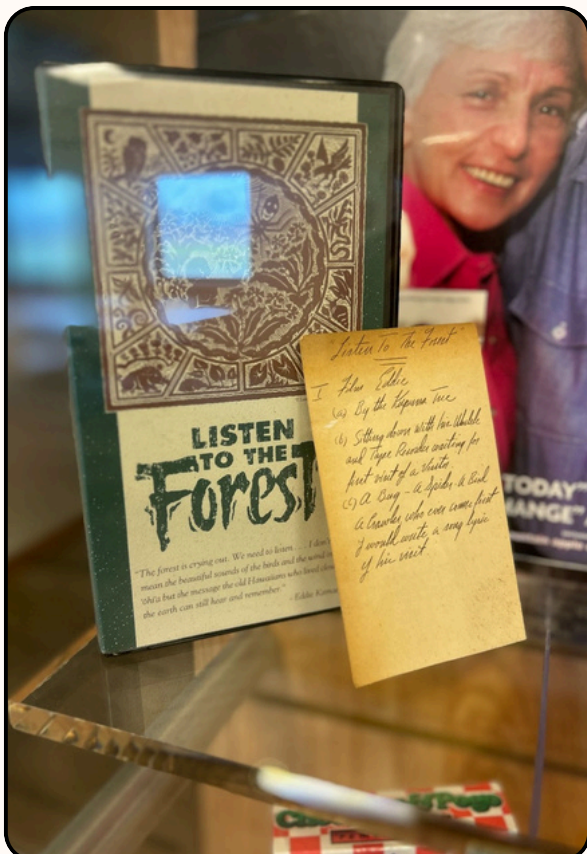 LISTEN
TO THE
Forest
"The forest is crying out. We need to listen . . . . I don't
mean the beautiful sounds of the birds and the wind
'ōhi'a but the message the old Hawaiians who lived clos
the earth can still hear and remember."
- Eddie Kama
"Listen To The Forest"
I Film Eddie
(a) By the Kapuna Tree
(b) Sitting down with his Ukulele
and Tape Recorder waiting for
first visit of a visitor.
(c) A Bug - A Spider - A Bird
A Crawler, who ever comes first
I would write a song lyric
of his visit.
TODAY
HANGE